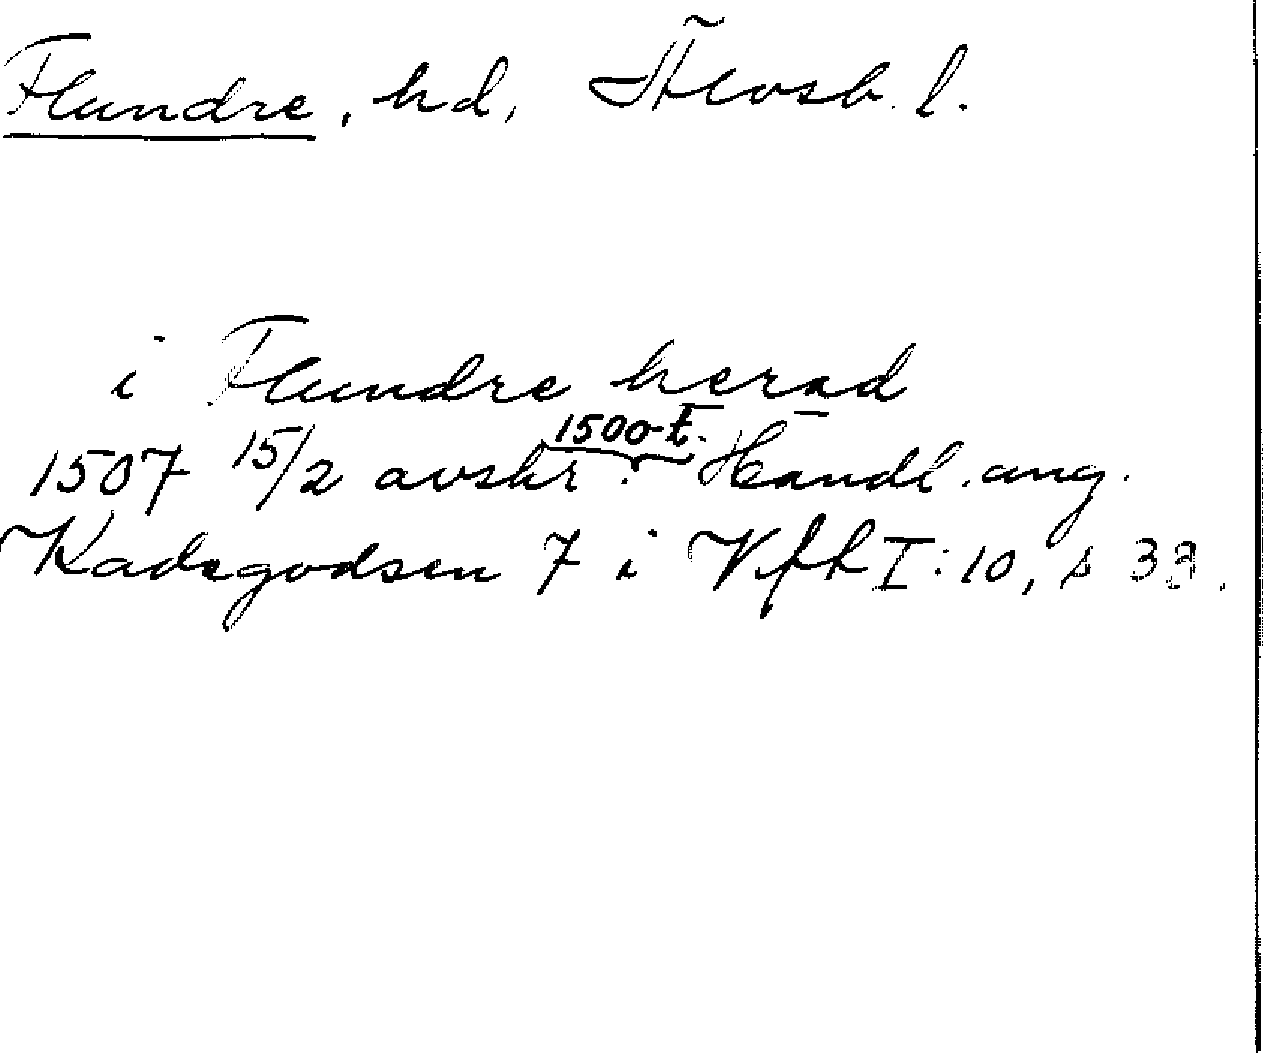 Flundre, hd, Älvsb. l.
i Flundre herad
1500-t.
1507 15/2 avskr. Handl. ang.
Kadsgodsen 7 i Vfh I:10, s 33.